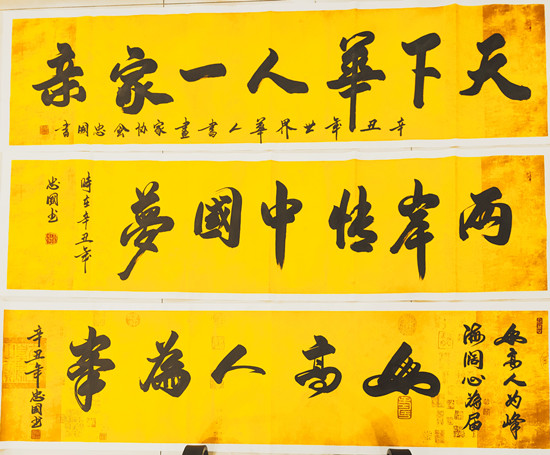 天下華人一家亲
辛丑年世界華人書畫家协会忠國書
两岸情中國夢
時在辛丑年
忠國书
山高人为峰
海阔心为届
山高人為峯
辛丑年忠國书